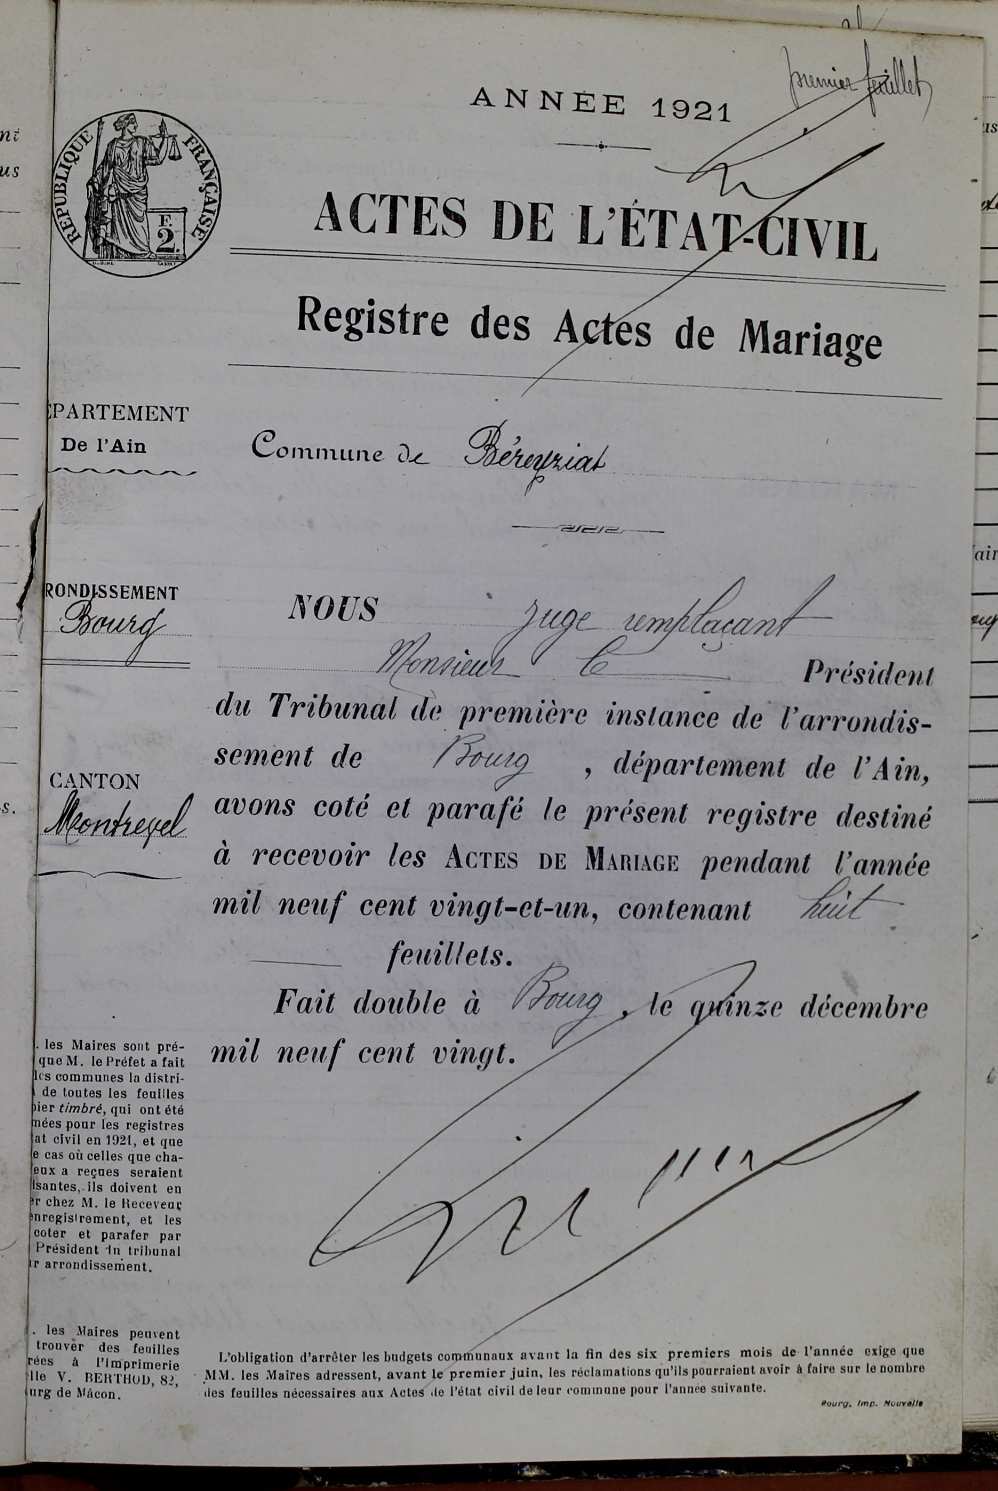 premier feuillet
ANNÉE 1921
RÉPUBLIQUE FRANÇAISE
F.
2.
ACTES DE L'ÉTAT-CIVIL
Registre des Actes de Mariage
ÉPARTEMENT
De l'Ain
Commune de Béreyziat
RONDISSEMENT
Bourg
CANTON
Montrevel
NOUS juge remplaçant
Monsieur le Président
du Tribunal de première instance de l'arrondis-
sement de Bourg, département de l'Ain,
avons coté et parafé le présent registre destiné
à recevoir les ACTES DE MARIAGE pendant l'année
mil neuf cent vingt-et-un, contenant huit
feuillets.
Fait double à Bourg, le quinze décembre
mil neuf cent vingt.
. les Maires sont pré-
que M. le Préfet a fait
les communes la distri-
de toutes les feuilles
pier timbré, qui ont été
mées pour les registres
tat civil en 1921, et que
e cas où celles que cha-
eux a reçues seraient
isantes, ils doivent en
er chez M. le Receveur
enregistrement, et les
coter et parafer par
Président du tribunal
ur arrondissement.
. les Maires peuvent
trouver des feuilles
rées à l'Imprimerie
lle V. BERTHOD, 82,
urg de Mâcon.
L'obligation d'arrêter les budgets communaux avant la fin des six premiers mois de l'année exige que
MM. les Maires adressent, avant le premier juin, les réclamations qu'ils pourraient avoir à faire sur le nombre
des feuilles nécessaires aux Actes de l'état civil de leur commune pour l'année suivante.
Bourg, Imp. Nouvelle